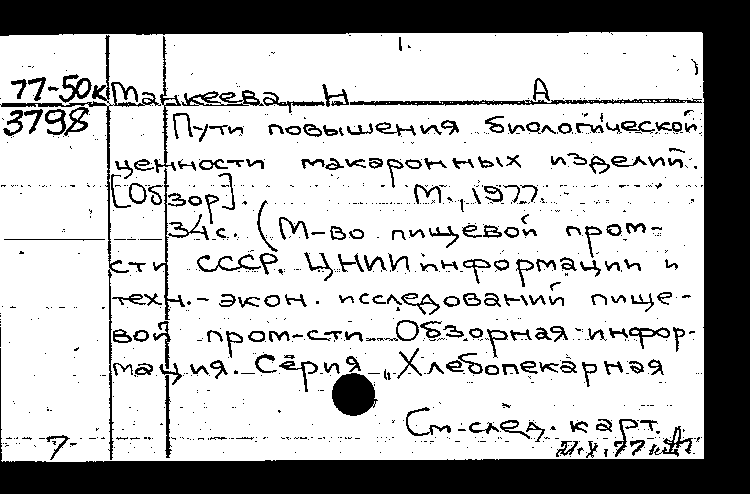 1.
77-50к Манкеева, Н А
3798 Пути повышения биологической
ценности макаронных изделий.
[Обзор]. М., 1977.
34 с. (М-во пищевой пром-
сти СССР. ЦНИИ информации и
техн.-экон. исследований пище-
вой пром-сти Обзорная инфор-
мация. Серия „Хлебопекарная
См. след. карт.
7- 21.X.77